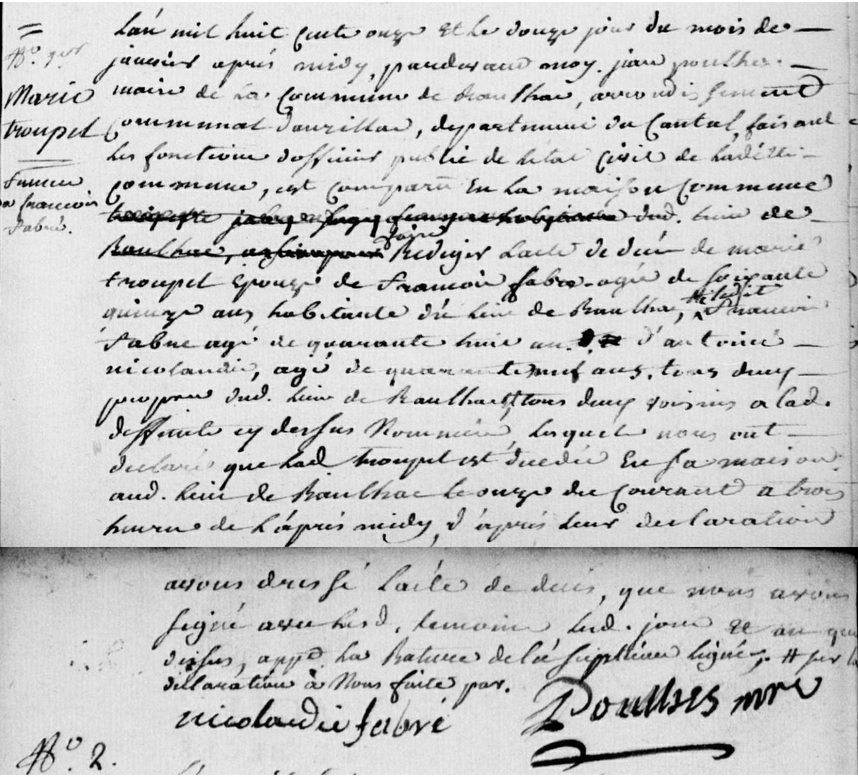 N.o 1er
Marie
troupel
femme
a francois
fabre.
L'an mil huit cents onze et le douze jour du mois de
janvier aprés midy, pardevant moy. jean poulhes.
maire de la Commune de Raulhac, arrondissement
Communal d'aurillac, departement du Cantal, faisant
les fonctions d'officier public de l'etat Civil de ladette
commune, est comparu En la maison Commune
dud. lieu de
Raulhac, faire Rediger L'acte de décés de marie
troupel Epouze de Francois fabre. agée de soixante
quinze ans habitante du lieu de Raulhac, # ledit Francois
fabre agé de quarante huit ans d'antoine
nicolaudie, agé de quarante neuf ans. tous deux
propres dud. lieu de Raulhac, tous deux voisins a lad.
deffunte cy dessus Nommée, lesquels nous ont
declaré que lad troupel est décédée En sa maison
aud. lieu de Raulhac le onze du Courant a trois
heures de l'aprés midy, d'aprés leur declaration
avons dressé L'acte de décés, que nous avons
signé avec lesd. temoins lesd. jour et an que
dessus, app. la Rature de la septieme ligne. # sur la
declaration à Nous faite par.
nicolaudie fabré Poulhes mre
N.o 2.